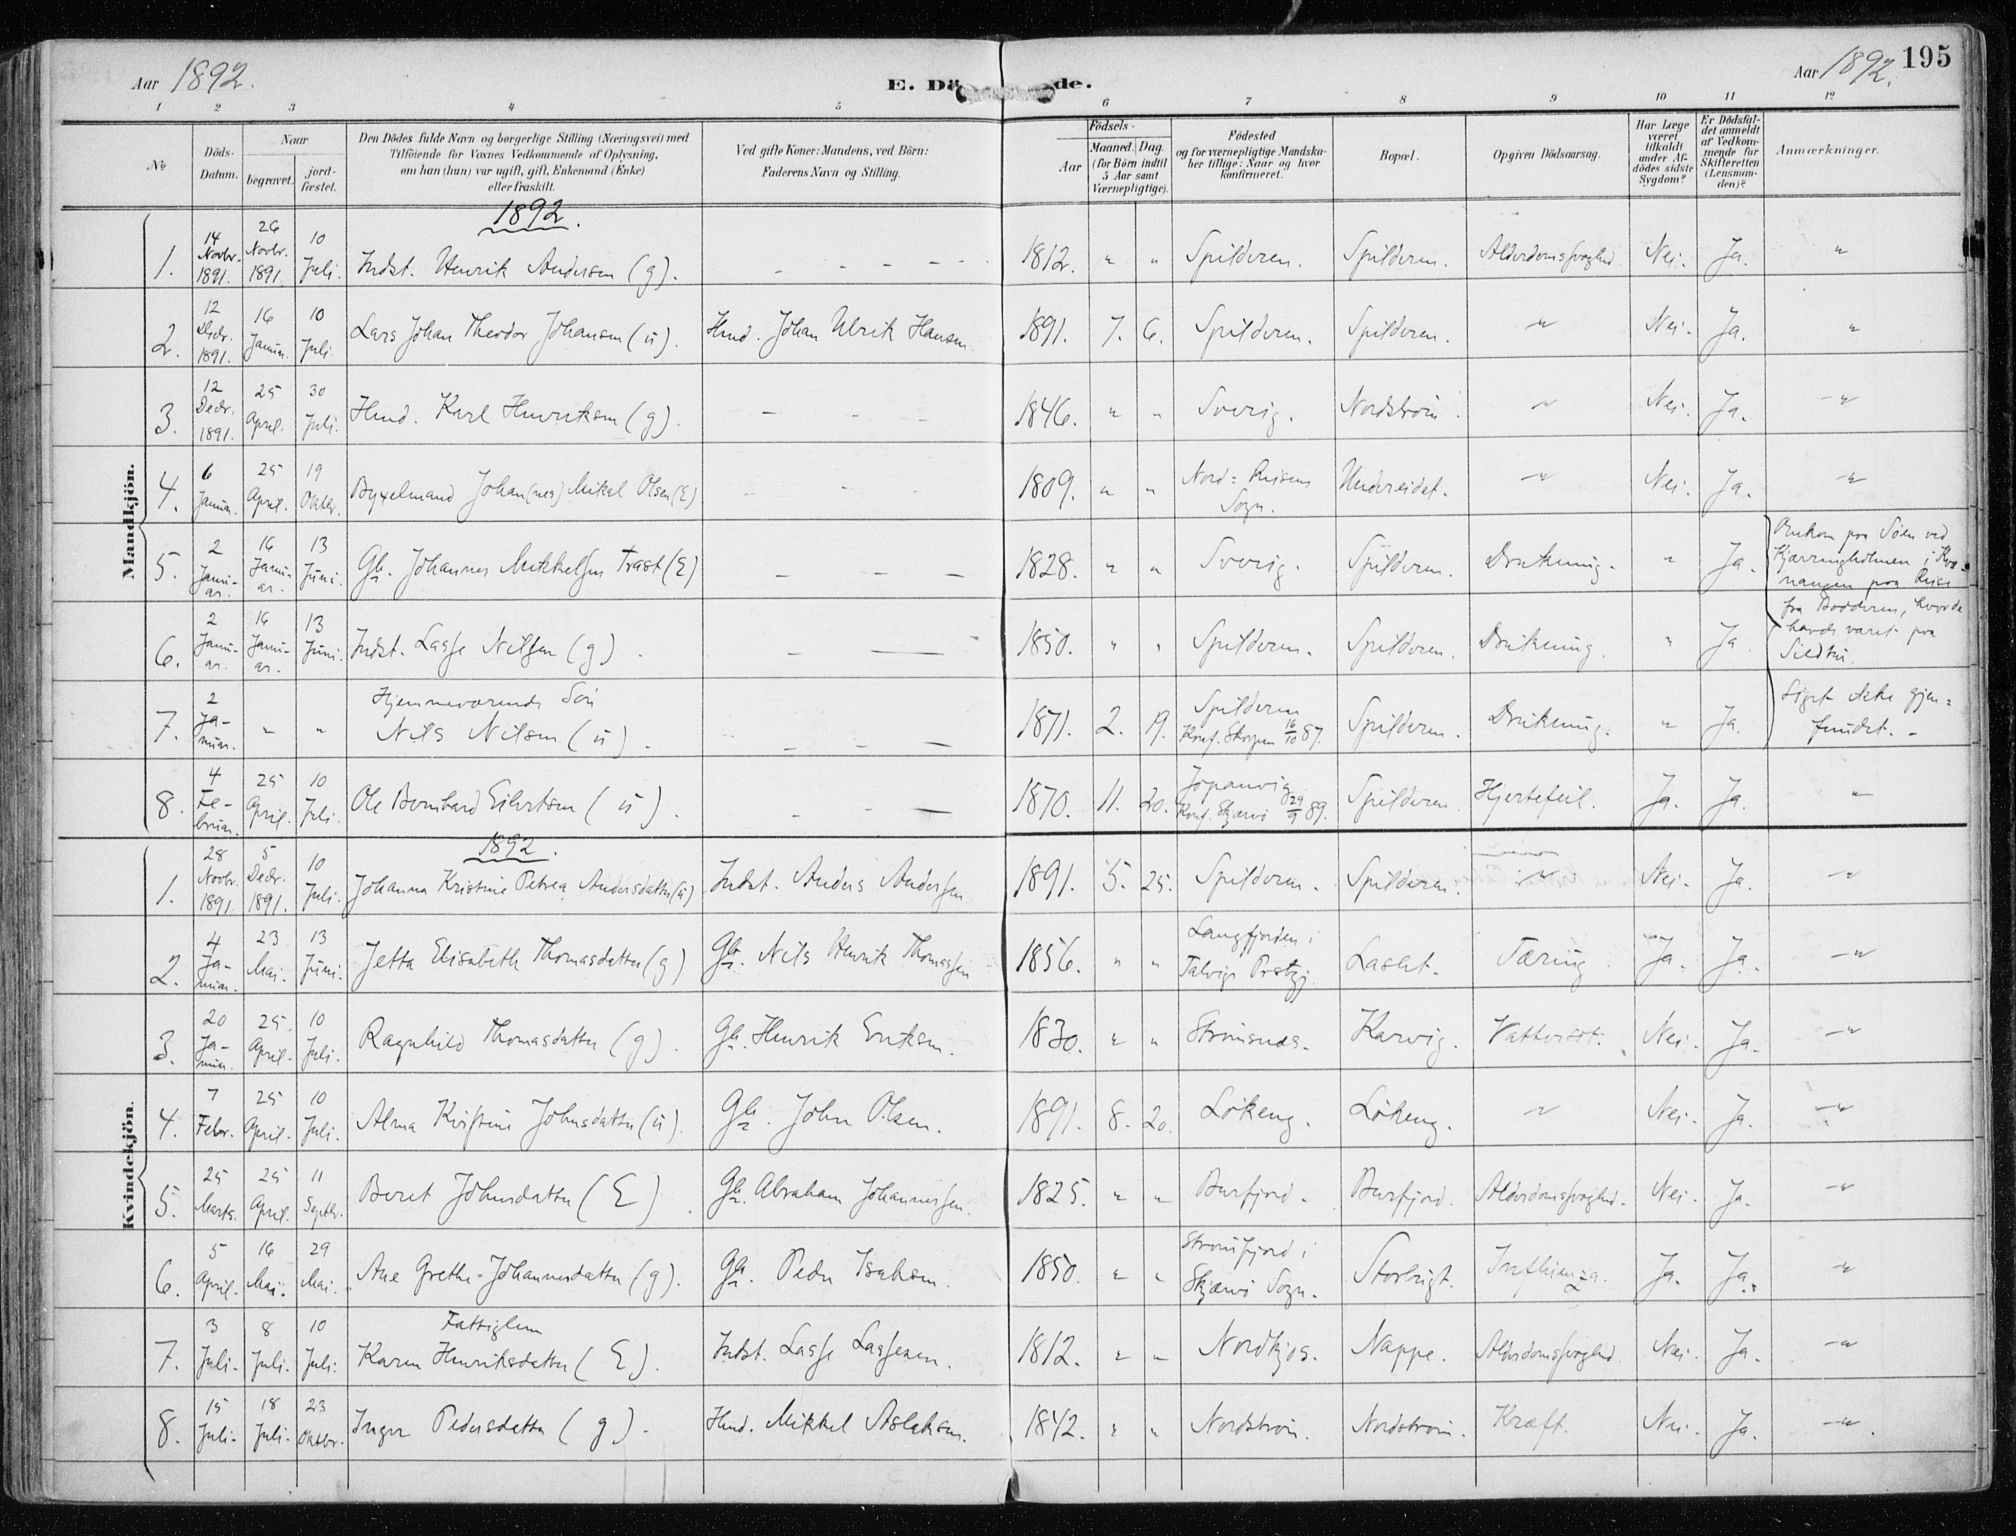 Aar 1892.
E. Dö de.
Aar 1892.
195
1 2 3 4 5 6 7 8 9 10 11 12
No
Döds-Datum.
Naar
begravet.
jord-fæstet.
Den Dödes fulde Navn og borgerlige Stilling (Næringsvei) med
Tilföiende for Voxnes Vedkommende af Oplysning,
om han (hun) var ugift, gift, Enkemand (Enke)
eller fraskilt.
Ved gifte Koner: Mandens, ved Börn:
Faderens Navn og Stilling.
Födsels-
Aar
Maaned. Dag.
(for Börn indtil
5 Aar samt
Værnepligtige).
Födested
og for værnepligtige Mandska-
ber tillige: Naar og hvor
konfirmeret.
Bopæl.
Opgiven Dödsaarsag.
Har Læge
været
tilkaldt
under Af-
dödes sidste
Sygdom?
Er Dödsfal-
det anmeldt
af Vedkom-
mende for
Skifteretten
(Lensman-
den)?
Anmærkninger.
Mandkjön.
1892.
1. 14 Novbr. 1891. 26 Novbr. 1891. 10 Juli. Indst. Henrik Andersen (g). - - - - - 1812. " " Spilderen. Spilderen. Alderdomssvaghed. Nei. Ja. "
2. 12 Decbr. 1891. 16 Januar. 10 Juli. Lars Johan Theodor Johansen (ú). Hmd. Johan Ulrik Hansen 1891. 7. 6. Spilderen. Spilderen. " Nei. Ja. "
3. 12 Decbr. 1891. 25 April. 30 Juli. Hmd. Karl Henriksen (g). - - - 1846. " " Sverig. Nordström. " Nei. Ja. "
4. 6 Januar. 25 April. 19 Oktbr. Byxelmand Johan(nes) Mikal Olsen (E) - - - 1809. " " Nord-Reisens Sogn. Undereidet. " Nei. Ja. "
5. 2 Januar. 16 Januar. 13 Juni. Gb. Johannes Mikkelsen Trast (E) - - - 1828. " " Sverig. Spilderen. Drukning. " Ja. Omkom paa Söen ved
Kjærringholmen i Kvæ-
nangen paa Reise
6. 2 Januar. 16 Januar. 13 Juni. Indst. Lasse Nilsen (g). - - - 1850. " " Spilderen. Spilderen. Drukning. " Ja. fra Badderen, hvor de
havde været paa
Sildfiske.
7. 2 Januar. " " Hjemmeværende Sön
Nils Nilsen (ú). - - - 1871. 2. 19. Spilderen Konf. Skorpen 16/10 87. Spilderen. Drukning. " Ja. Liget ikke gjen-
fundet.
8. 4 Februar. 25 April. 10 Juli. Ole Bernhard Eilertsen (ú). - - - 1870. 11. 20. Konf. Skjærvö 29/9 89. Spilderen. Hjertefeil. Ja. Ja. "
Kvindekjön.
1892.
1. 28 Novbr. 1891. 5 Decbr. 1891. 10 Juli. Johanna Kristine Petrea Andersdatter (ú) Indst. Anders Andersen 1891. 5. 25. Spilderen. Spilderen. " Nei. Ja. "
2. 4 Januar. 23 Mai. 13 Juni. Jetta Elisabeth Thomasdatter (g) Gbr. Nils Henrik Thomassen 1856. " " Langfjorden i Talvigs Prstgj. Laslet. Tæring. Ja. Ja. "
3. 20 Januar. 25 April. 10 Juli. Ragnhild Thomasdatter (g). Gb. Henrik Eriksen. 1830. " " Strömsnes. Karvig. Vattersot. Nei. Ja. "
4. 7 Febr. 25 April. 10 Juli. Alma Kristine Johnsdatter (ú). Gb. John Olsen. 1891. 8. 20. Lökeng. Lökeng. " Nei. Ja. "
5. 25 Marts. 25 April. 11 Septbr. Beret Johnsdatter (E). Gb. Abraham Johannessen. 1825. " " Burfjord. Burfjord. Alderdomssvaghed. Nei. Ja. "
6. 5 April. 16 Mai. 29 Mai. Ane Grethe Johannesdatter (g). Gb. Peder Isaksen. 1850. " " Strömfjord i Skjærvö Sogn. Storbugt. Influenza. Ja. Ja. "
7. 3 Juli. 8 Juli. 10 Juli. Fattiglem
Karen Henriksdatter (E). Indst. Lasse Lassesen. 1812. " " Nordkjos. Nappe. Alderdomssvaghed. Nei. Ja. "
8. 15 Juli. 18 Juli. 23 Oktbr. Inger Pedersdatter (g). Hmd. Mikkel Aslaksen. 1842. " " Nordström. Nordström. Kræft. Nei. Ja. "